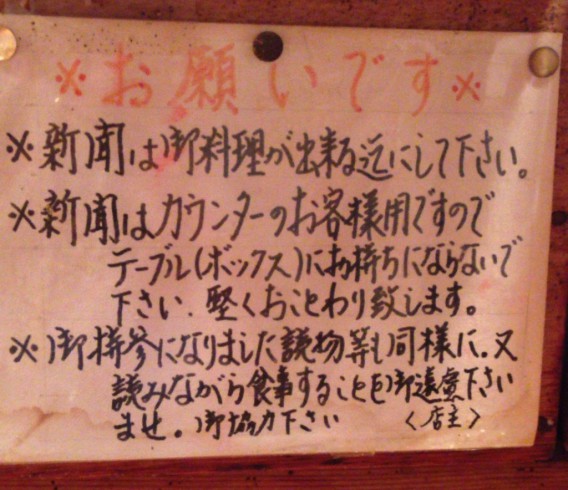 ※お願いです※
※新聞は御料理が出来る迄にして下さい。
※新聞はカウンターのお客様用ですので
テーブル(ボックス)にお持ちにならないで
下さい、堅くおことわり致します。
※御持参になりました読物等も同様に。又
読みながら食事することを御遠慮下さい
ませ。御協力下さい 〈店主〉